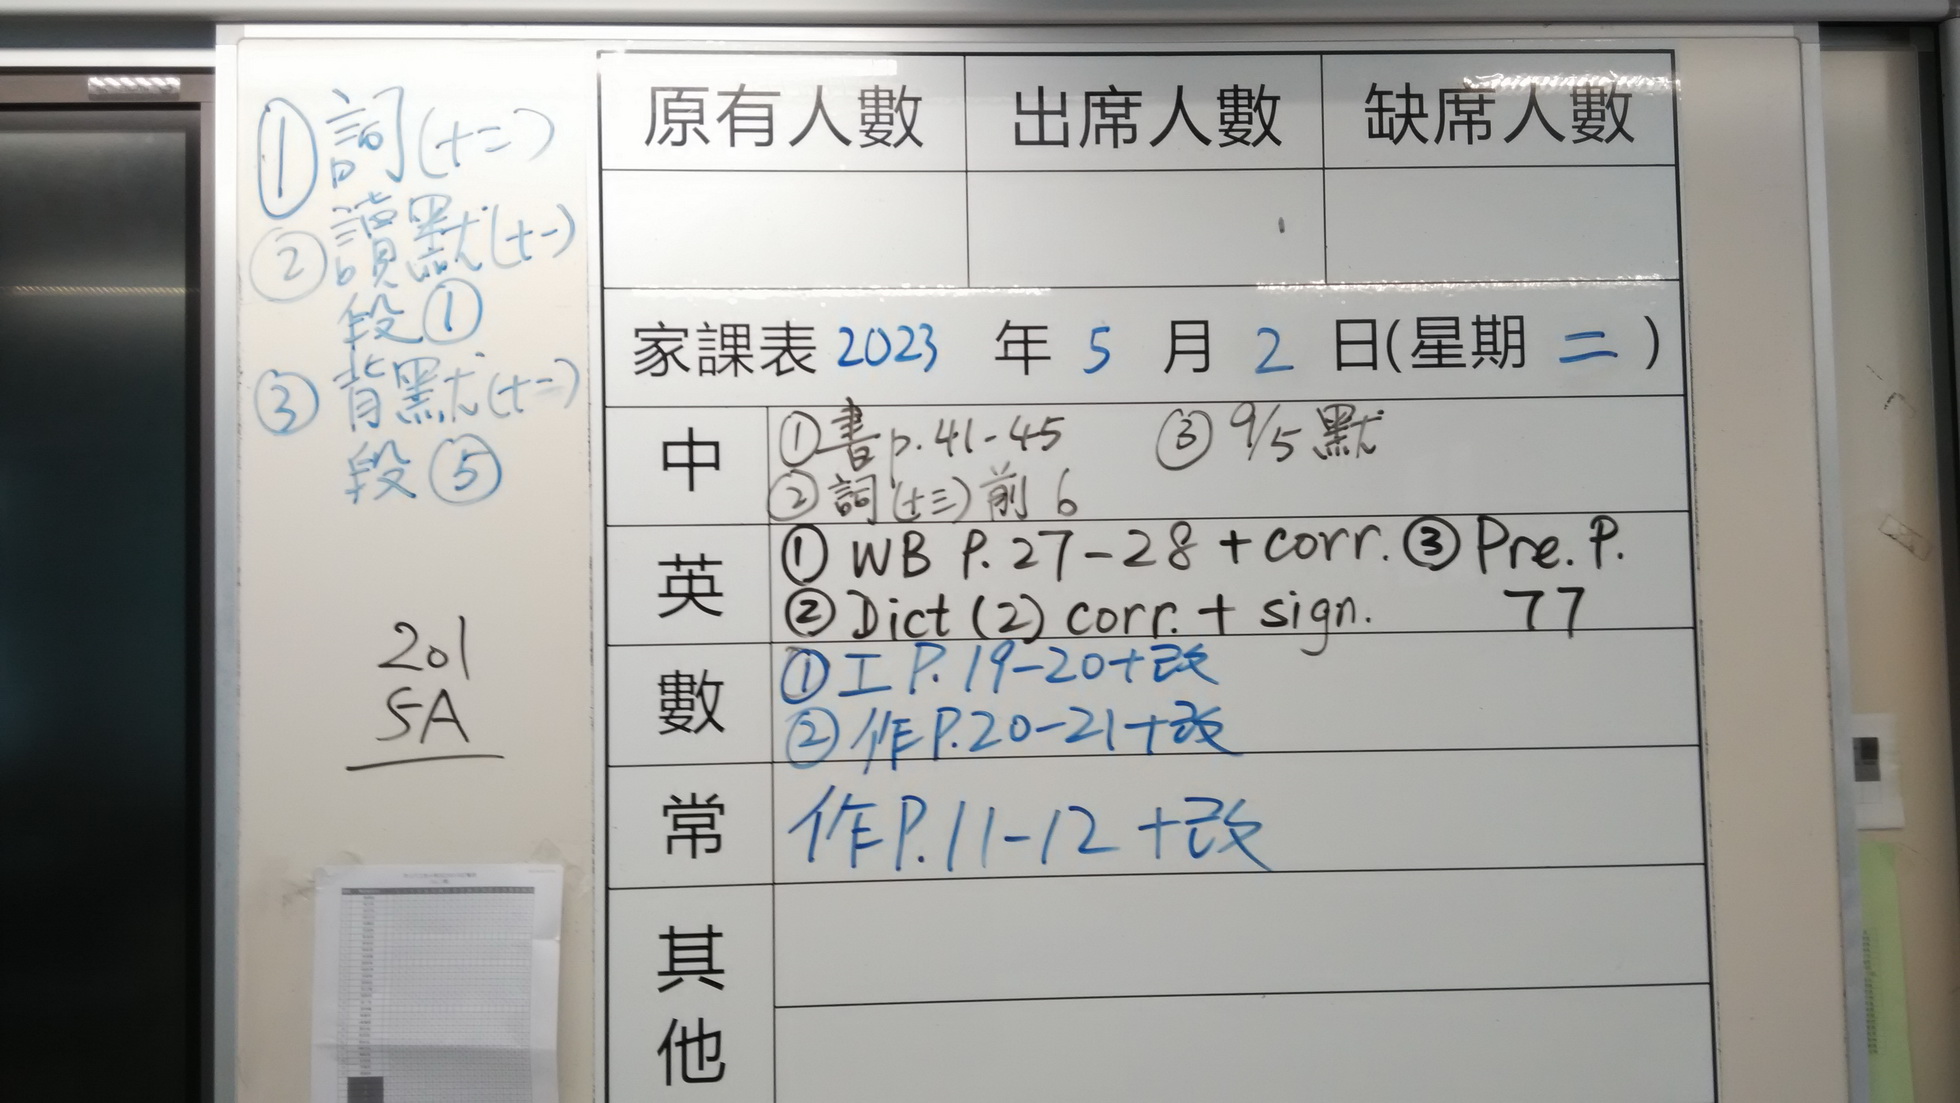 ①詞(十二)
②讀默(十一)
段①
③背默(十一)
段⑤
201
5A
原有人數 出席人數 缺席人數
家課表 2023 年 5 月 2 日(星期 二 )
中 ①書p.41-45 ③9/5默
②詞(十三)前6
英 ①WB P.27-28+corr. ③Pre.P.
②Dict(2) corr.+ sign. 77
數 ①工P.19-20+改
②作P.20-21+改
常 作P.11-12+改
其
他